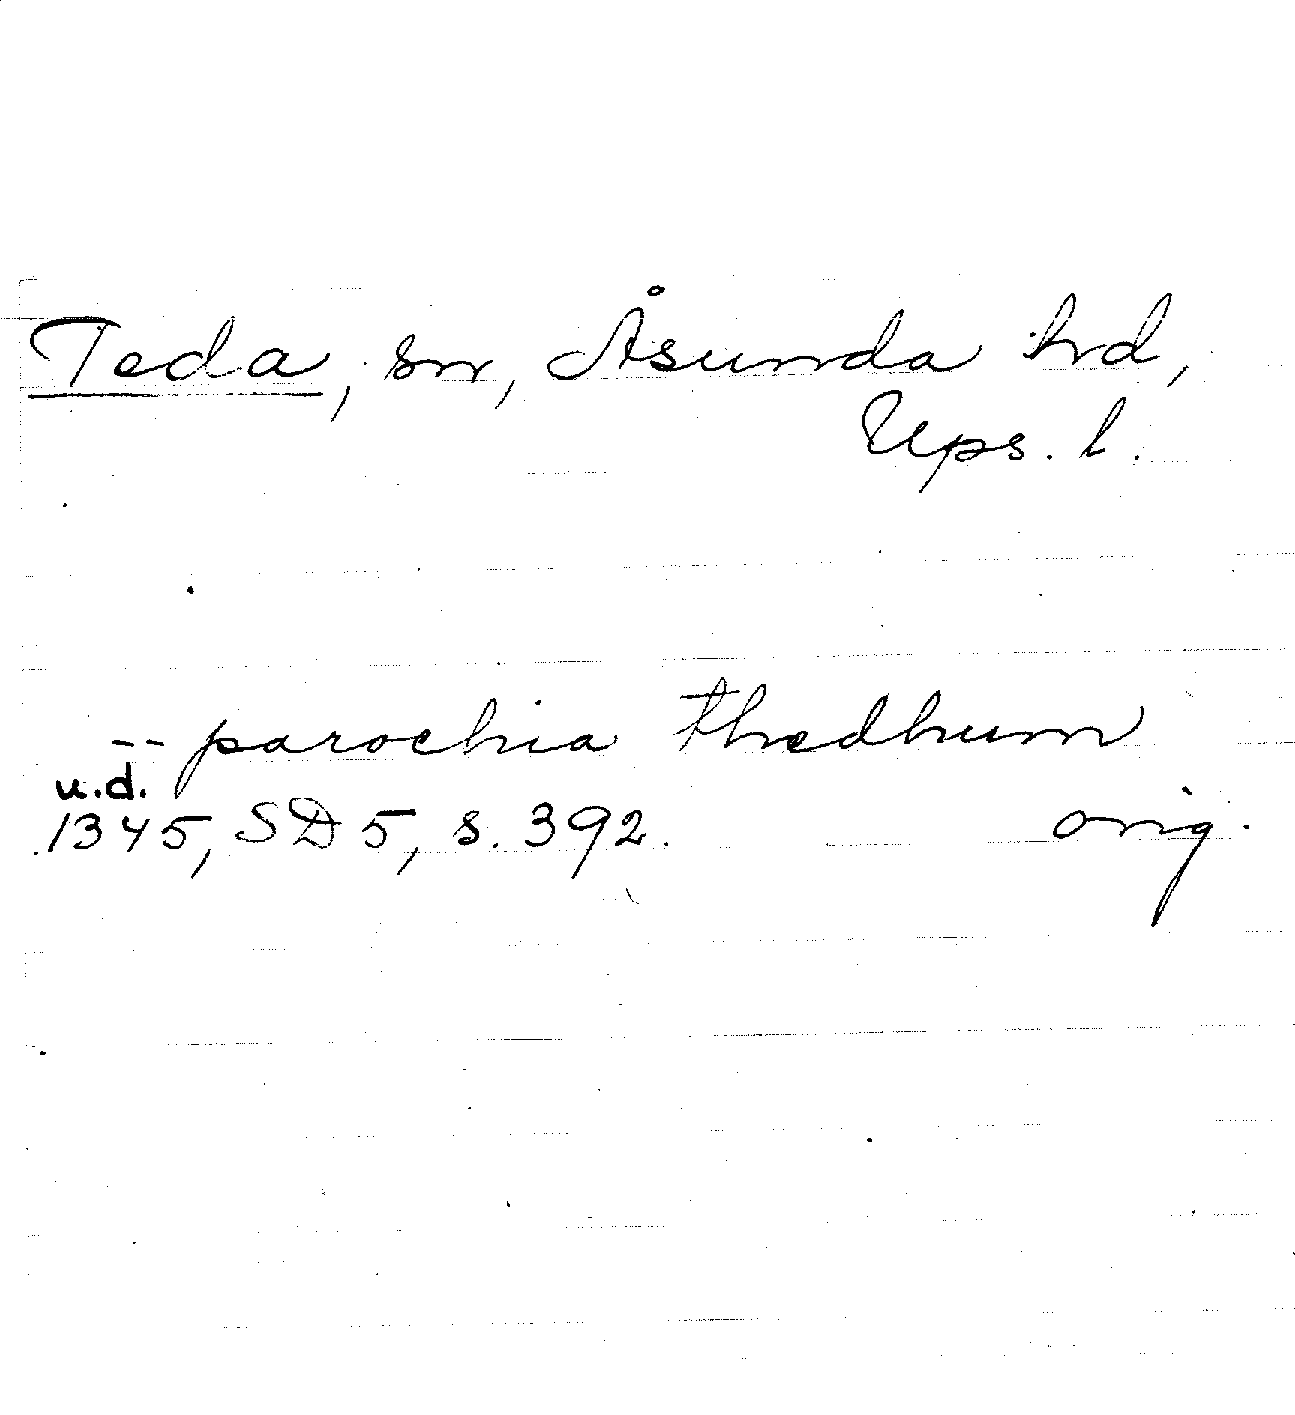 Teda, sn, Åsunda hrd,
Ups. l.
-- parochia thedhum
u.d.
1345, SD 5, s. 392. orig.